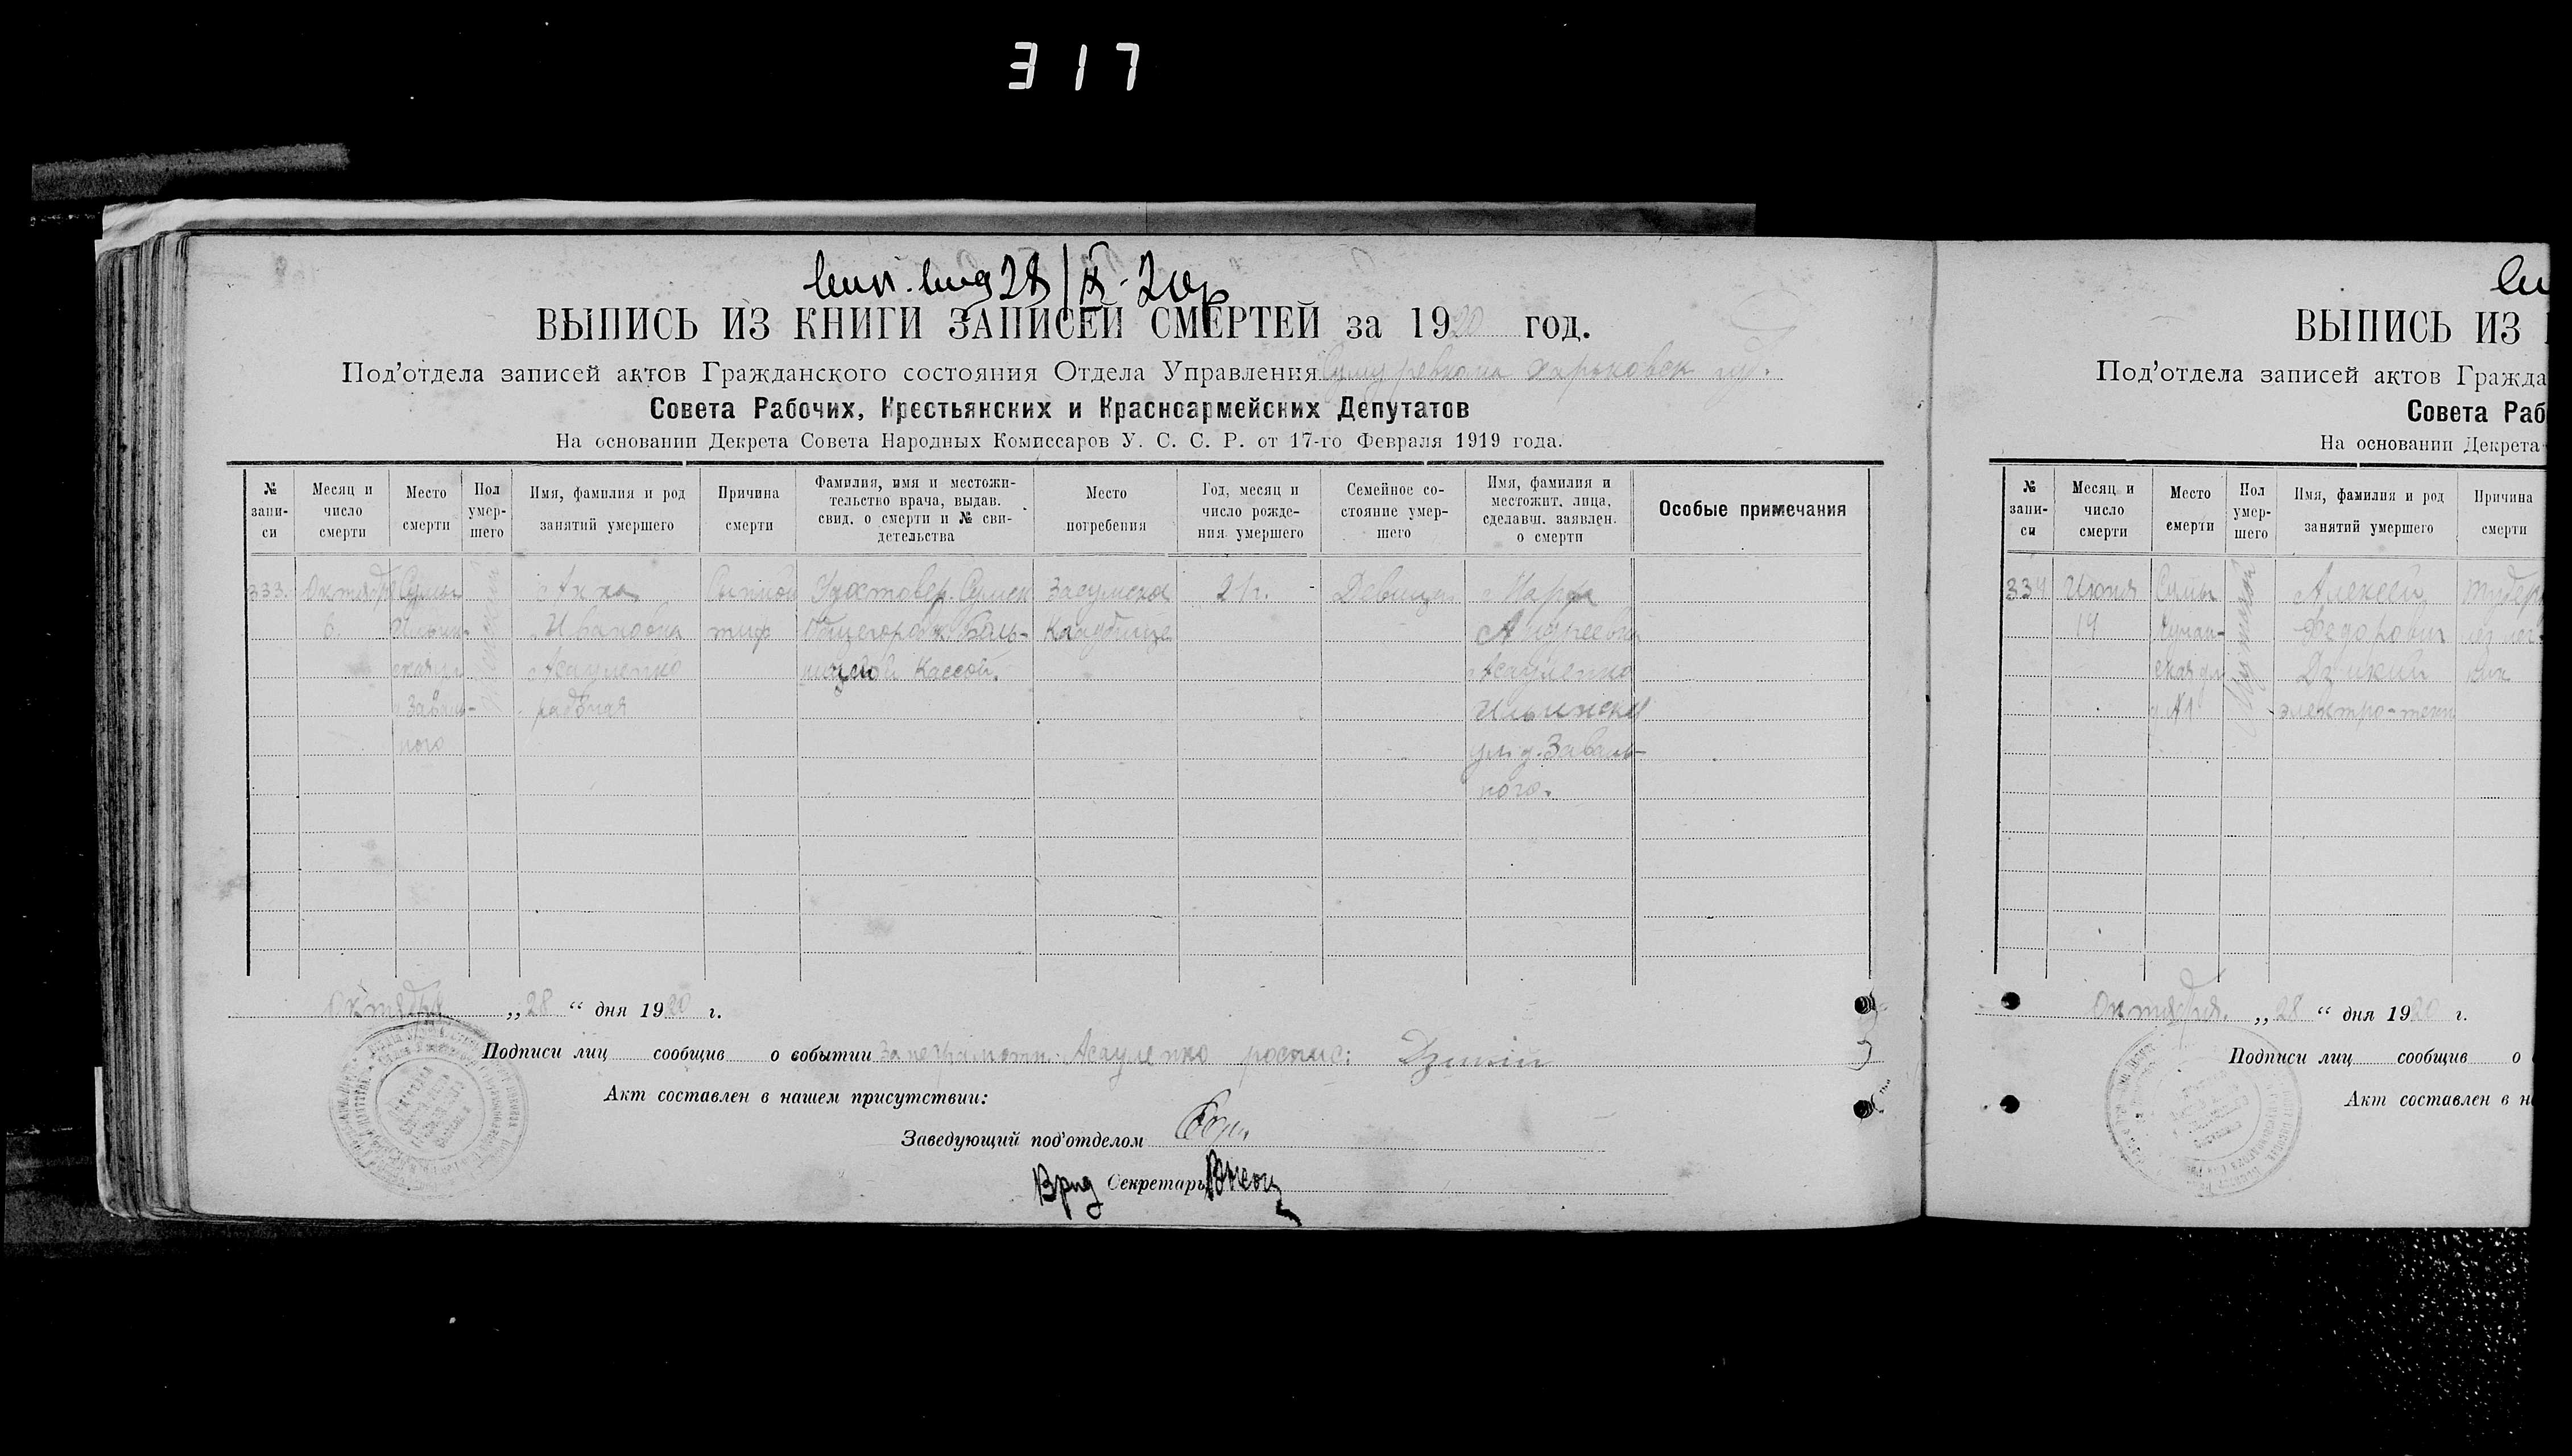 317
28/X-20г
ВЫПИСЬ ИЗ КНИГИ ЗАПИСЕЙ СМЕРТЕЙ за 1920 год.
Под'отдела записей актов Гражданского состояния Отдела Управления Сумуревкома Харьковск губ.
Совета Рабочих, Крестьянских и Красноармейских Депутатов
На основании Декрета Совета Народных Комиссаров У. С. С. Р. от 17-го Февраля 1919 года.
№ запи-си
Месяц и число смерти
Место смерти
Пол умер-шего
Имя, фамилия и род занятий умершего
Причина смерти
Фамилия, имя и местожи-тельство врача, выдав. свид. о смерти и № сви-детельства
Место погребения
Год, месяц и число рожде-ния умершего
Семейное со-стояние умер-шего
Имя, фамилия и местожит. лица, сделавш. заявлен. о смерти
Особые примечания
333. Октября Сумы Женский Анна Сыпной Удостовер. Сумск Засумское 21 г. Девица Марфа
6. Ильин- Ивановна тиф Общегородск. Боль- Кладбище Андреевна
ская ул Асауленко ничной Кассой. Асауленко
Заваль- рабочая Ильинская
ного ул д. Заваль-
ного.
Октября „28“ дня 1920 г.
Подписи лиц сообщив о событии За неграмотн. Асауленко роспис: Дзикий
Акт составлен в нашем присутствии:
Заведующий под'отделом
Врид Секретарь
ВЫПИСЬ ИЗ
Под'отдела записей актов Гражда
Совета Раб
На основании Декрета
№ запи-си
Месяц и число смерти
Место смерти
Пол умер-шего
Имя, фамилия и род занятий умершего
Причина смерти
334 Июня Сумы Мужской Алексей Тубер
14 Лучан- Федорович лег
ская ул Дзикий ких
№1 электро-техн
Октября „28“ дня 1920 г.
Подписи лиц сообщив о
Акт составлен в н